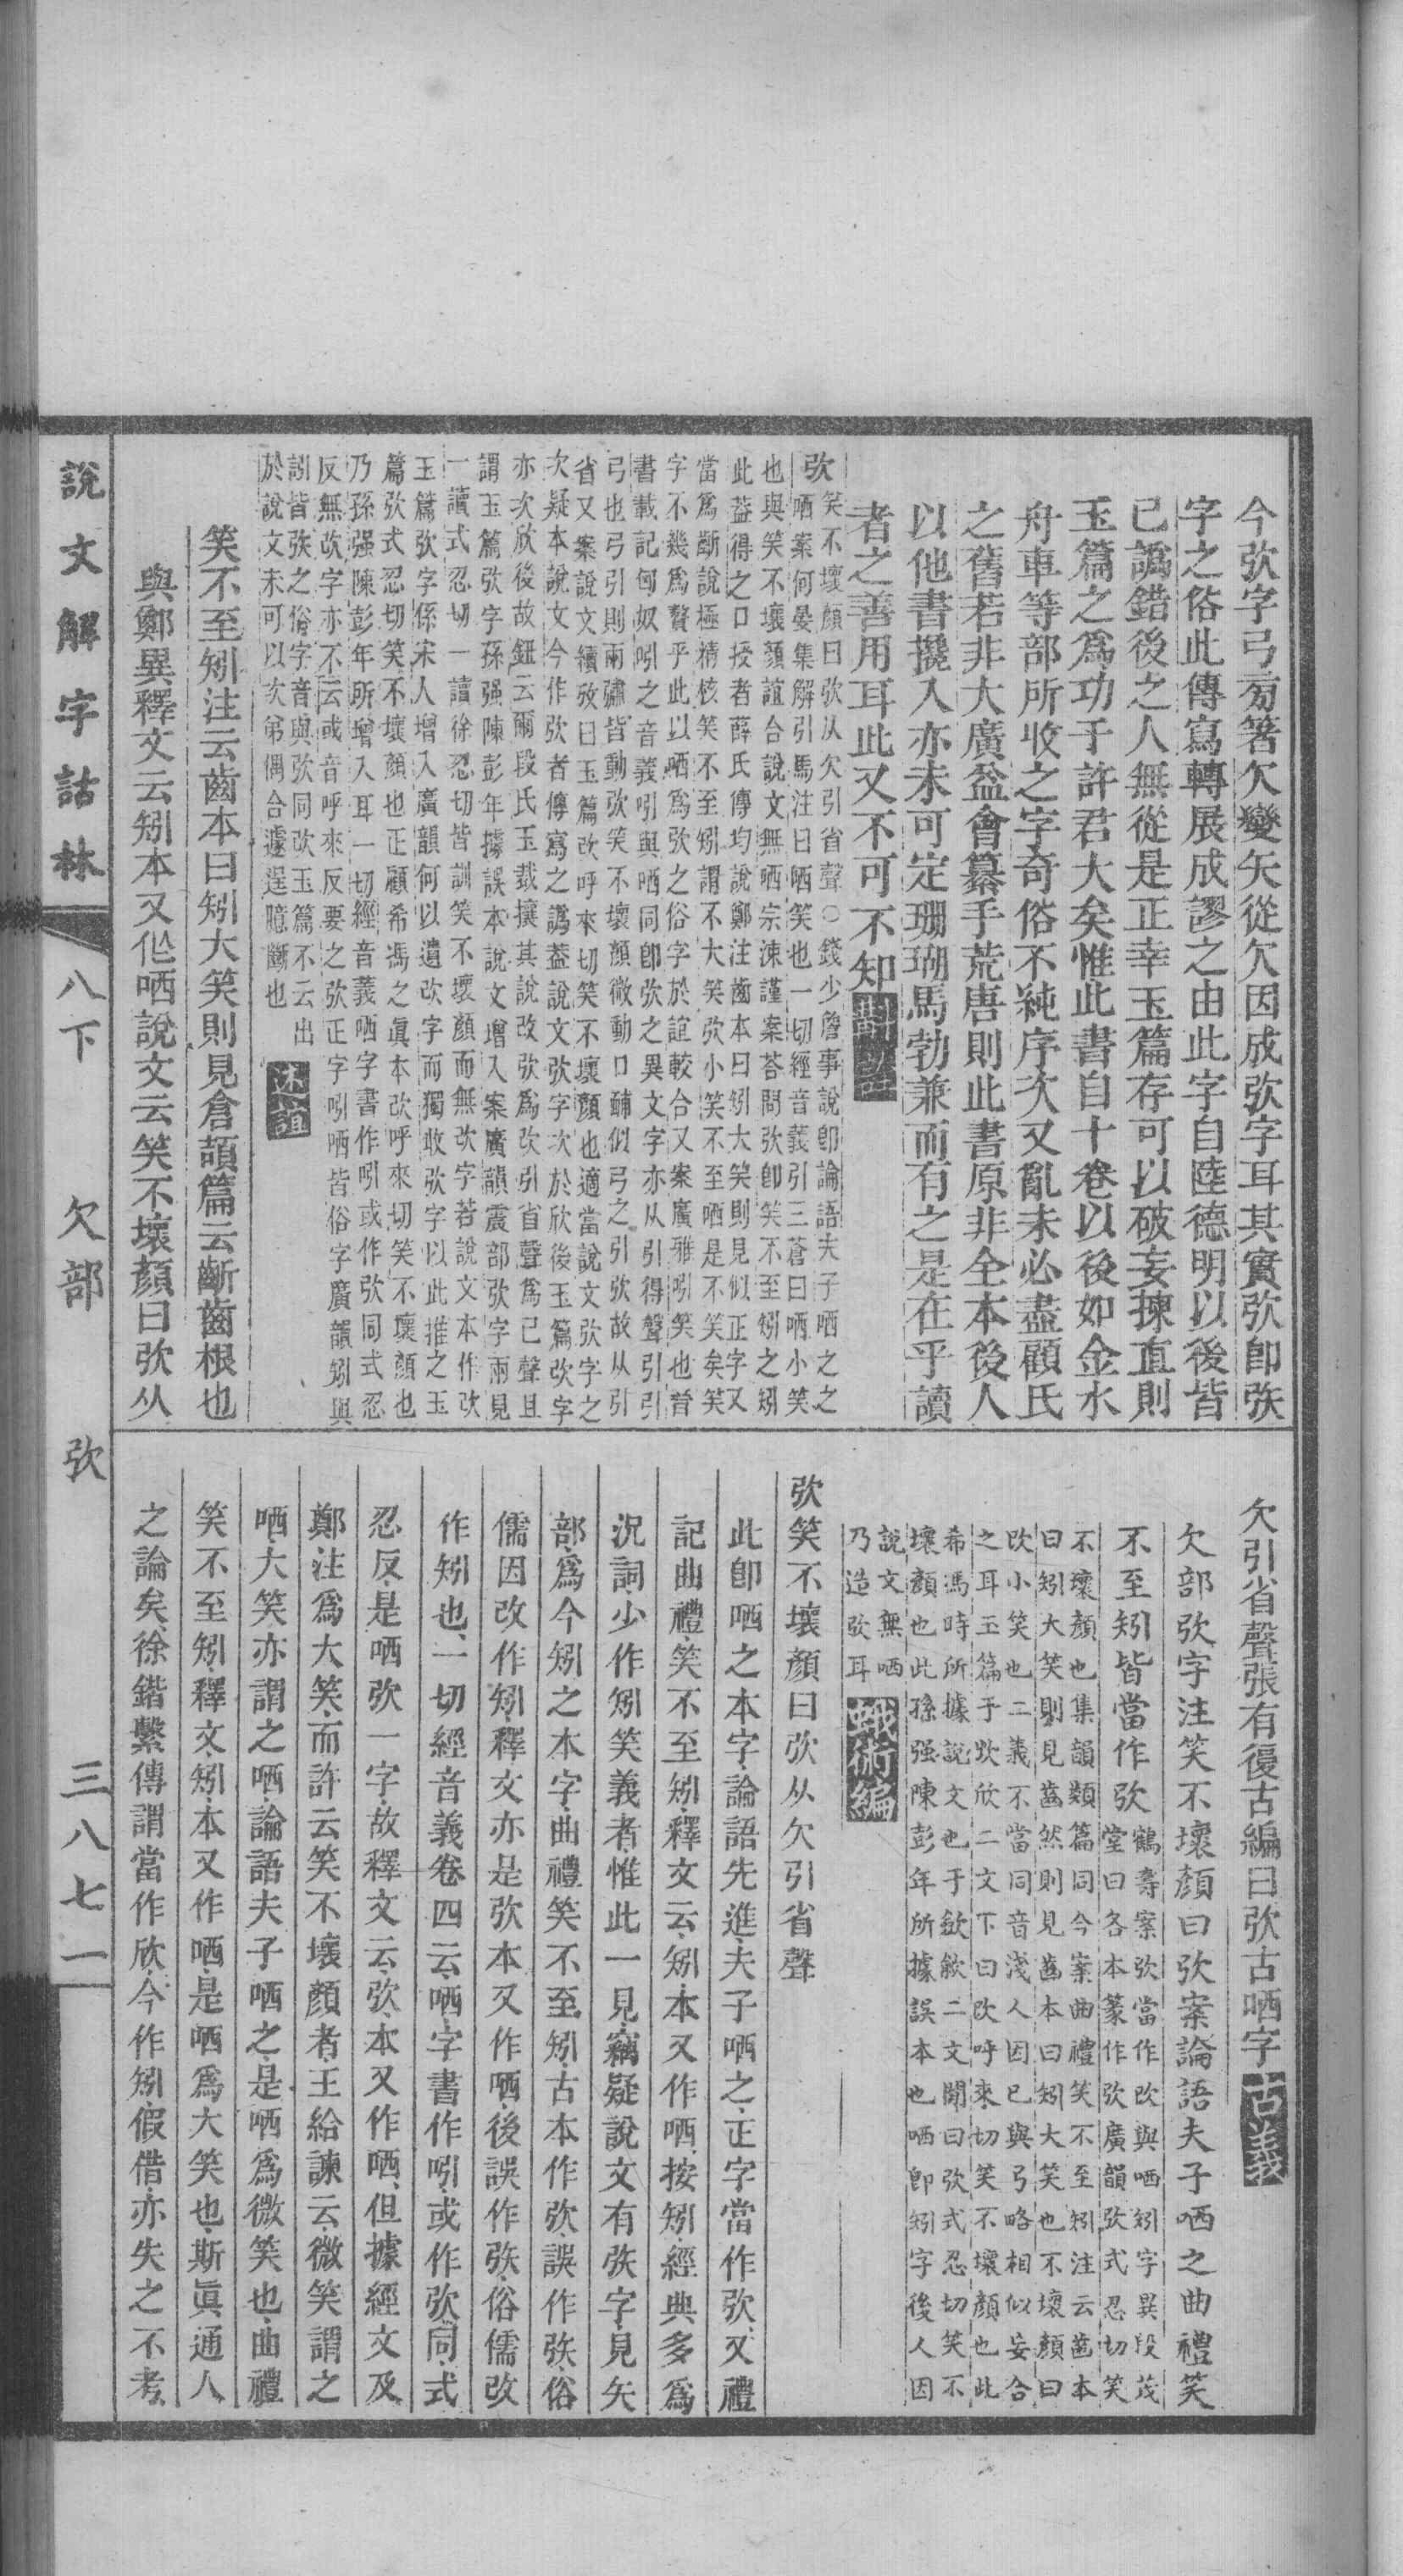 今㰞字弓㫄箸欠變矢從欠因成㰞字耳其實㰞卽矧
字之俗此傳寫轉展成謬之由此字自陸德明以後皆
已譌錯後之人無從是正幸玉篇存可以破妄揀直則
玉篇之爲功于許君大矣惟此書自十卷以後如金水
舟車等部所收之字奇俗不純序次又亂未必盡顧氏
之舊若非大廣益會纂手荒唐則此書原非全本後人
以他書攙入亦未可定珊瑚馬勃兼而有之是在乎讀
者之善用耳此又不可不知
㰞笑不壞顏曰㰞从欠引省聲○錢少詹事說卽論語夫子哂之之
哂案何晏集解引馬注曰哂笑也一切經音義引三蒼曰哂小笑
也與笑不壞顏誼合說文無哂宗涑謹案荅問㰞卽笑不至矧之矧
此益得之口授者薛氏傳均說鄭注齒本曰矧大笑則見似正字又
當爲齗說極精核笑不至矧謂不大笑㰞小笑不至哂是不笑矣笑
字不幾爲贅乎此以哂爲㰞之俗字於誼較合又案廣雅吲笑也晉
書載記匈奴吲之音義引與哂同卽㰞之異文字亦从引得聲引引
弓也弓引則兩彇皆動㰞笑不壞顏微動口輔似弓之引㰞故从引
省又案說文續攷曰玉篇改呼來切笑不壞顏也適當說文㰞字之
次疑本說文今作㰞者傳寫之譌葢說文㰞字次於欣後玉篇改字
亦次欣後故鈕云爾段氏玉裁攘其說改㰞爲改引省聲爲已聲且
謂玉篇㰞字孫强陳彭年據誤本說文增入案廣韻震部㰞字兩見
一讀式忍切一讀徐忍切皆訓笑不壞顏而無改字若說文本作改
玉篇㰞字係宋人增入廣韻何以遺改字而獨收㰞字以此推之玉
篇㰞式忍切笑不壞顏也正顧希馮之眞本改呼來切笑不壞顏也
乃孫强陳彭年所增入耳一切經音義哂字書作吲或作㰞同式忍
反無改字亦不云或音呼來反要之㰞正字吲哂皆俗字廣韻矧與
訠皆㰞之俗字音與㰞同改玉篇不云出
於說文未可以次第偶合遽逞臆斷也
笑不至矧注云齒本曰矧大笑則見倉頡篇云齗齒根也
與鄭異釋文云矧本又作哂說文云笑不壞顏曰㰞从
欠引省聲張有復古編曰㰞古哂字古義
欠部㰞字注笑不壞顏曰㰞案論語夫子哂之曲禮笑
不至矧皆當作㰞鶴壽案㰞當作改與哂矧字異段茂
堂曰各本篆作㰞廣韻㰞式忍切笑
不壞顏也集韻類篇同今案曲禮笑不至矧注云齒本
曰矧大笑則見齒然則見齒本曰矧大笑也不壞顏曰
改小笑也二義不當同音淺人因已與弓略相似妄合
之耳玉篇于㰟欣二文下曰改呼來切笑不壞顏也此
希馮時所據說文也于歃㱃二文閒曰㰞式忍切笑不
壞顏也此孫强陳彭年所據誤本也哂卽矧字後人因
說文無哂
乃造㰞耳蛾術編
㰞笑不壞顏曰㰞从欠引省聲
此卽哂之本字論語先進夫子哂之正字當作㰞又禮
記曲禮笑不至矧釋文云矧本又作哂按矧經典多爲
況詞少作矧笑義者惟此一見竊疑說文有矤字見矢
部爲今矧之本字曲禮笑不至矧古本作㰞誤作矤俗
儒因改作矧釋文亦是㰞本又作哂後誤作矤俗儒改
作矧也一切經音義卷四云哂字書作吲或作㰞同式
忍反是哂㰞一字故釋文云㰞本又作哂但據經文及
鄭注爲大笑而許云笑不壞顏者王給諫云微笑謂之
哂大笑亦謂之哂論語夫子哂之是哂爲微笑也曲禮
笑不至矧釋文矧本又作哂是哂爲大笑也斯眞通人
之論矣徐鍇繫傳謂當作欣今作矧假借亦失之不考
說文解字詁林 八下 欠部 㰞 三八七一